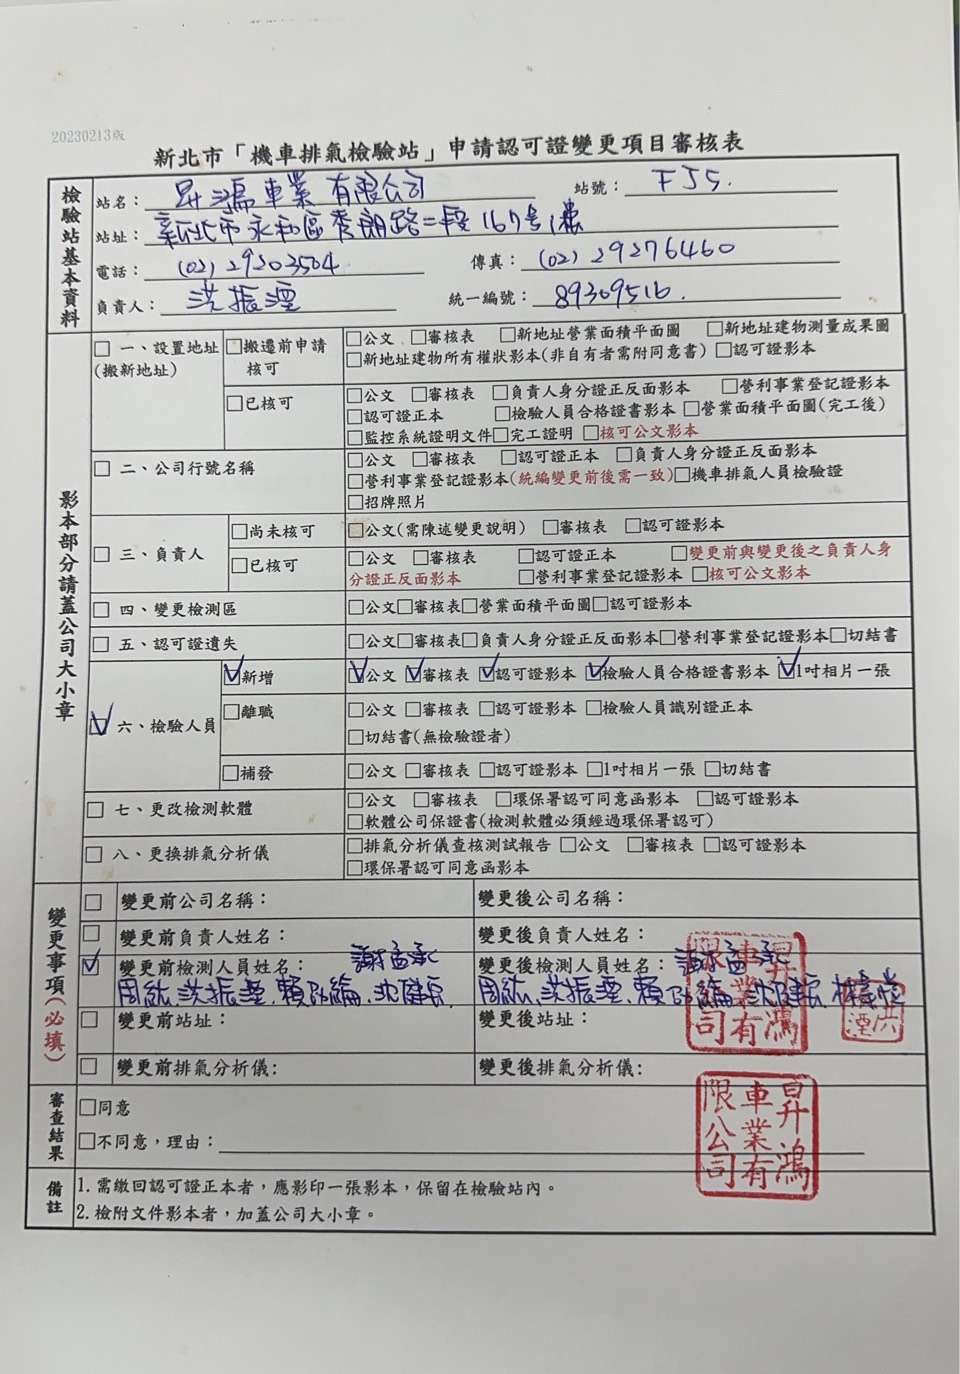 20230213版
新北市「機車排氣檢驗站」申請認可證變更項目審核表
檢驗站基本資料
站名：昇鴻車業有限公司 站號：FJ5.
站址：新北市永和區秀朗路二段167號1樓
電話：(02)29203504 傳真：(02)29276460
負責人：洪振湮 統一編號：89309516.
影本部分請蓋公司大小章
□一、設置地址(搬新地址) □搬遷前申請核可 □公文 □審核表 □新地址營業面積平面圖 □新地址建物測量成果圖
□新地址建物所有權狀影本(非自有者需附同意書) □認可證影本
□已核可 □公文 □審核表 □負責人身分證正反面影本 □營利事業登記證影本
□認可證正本 □檢驗人員合格證書影本 □營業面積平面圖(完工後)
□監控系統證明文件 □完工證明 □核可公文影本
□二、公司行號名稱 □公文 □審核表 □認可證正本 □負責人身分證正反面影本
□營利事業登記證影本(統編變更前後需一致) □機車排氣人員檢驗證
□招牌照片
□三、負責人 □尚未核可 □公文(需陳述變更說明) □審核表 □認可證影本
□已核可 □公文 □審核表 □認可證正本 □變更前與變更後之負責人身
分證正反面影本 □營利事業登記證影本 □核可公文影本
□四、變更檢測區 □公文□審核表□營業面積平面圖□認可證影本
□五、認可證遺失 □公文□審核表□負責人身分證正反面影本□營利事業登記證影本□切結書
☑六、檢驗人員 ☑新增 ☑公文 ☑審核表 ☑認可證影本 ☑檢驗人員合格證書影本 ☑1吋相片一張
□離職 □公文 □審核表 □認可證影本 □檢驗人員識別證正本
□切結書(無檢驗證者)
□補發 □公文 □審核表 □認可證影本 □1吋相片一張 □切結書
□七、更改檢測軟體 □公文 □審核表 □環保署認可同意函影本 □認可證影本
□軟體公司保證書(檢測軟體必須經過環保署認可)
□八、更換排氣分析儀 □排氣分析儀查核測試報告 □公文 □審核表 □認可證影本
□環保署認可同意函影本
變更事項(必填)
□ 變更前公司名稱： 變更後公司名稱：
□ 變更前負責人姓名： 變更後負責人姓名：
☑ 變更前檢測人員姓名：謝孟承 變更後檢測人員姓名：謝孟承
洪振湮 洪振湮
□ 變更前站址： 變更後站址：
□ 變更前排氣分析儀: 變更後排氣分析儀:
昇鴻車業有限公司
昇鴻車業有限公司
審查結果
□同意
□不同意，理由：
備註
1. 需繳回認可證正本者，應影印一張影本，保留在檢驗站內。
2. 檢附文件影本者，加蓋公司大小章。